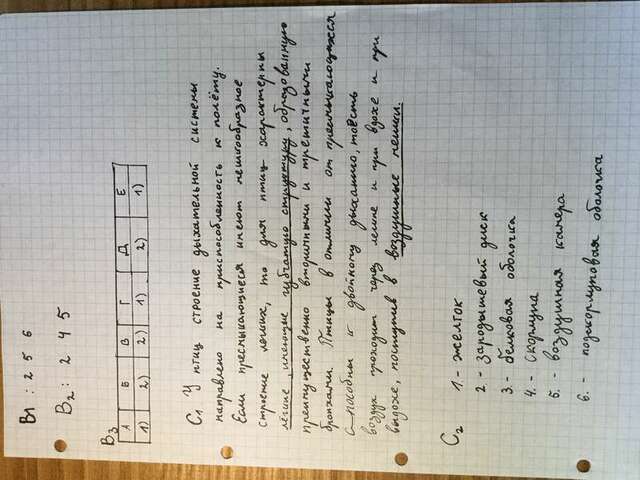 В1 : 2 5 6
В2 : 2 4 5
В3
А Б В Г Д Е
1) 2) 2) 1) 2) 1)
С1 У птиц строение дыхательной системы
направлено на приспособленность к полёту.
Если пресмыкающиеся имеют мешкообразное
строение легких, то для птиц характерны
лёгкие имеющие губчатую структуру, образованную
преимущественно вторичными и третичными
бронхами. Птицы в отличии от пресмыкающихся
способны к двойному дыханию, тоесть
воздух проходит через легкие и при вдохе и при
выдохе, поступив в воздушные мешки.
С2
1 - желток
2 - зародышевый диск
3. - белковая оболочка
4. - скорлупа
5. - воздушная камера
6. - подскорлуповая оболочка